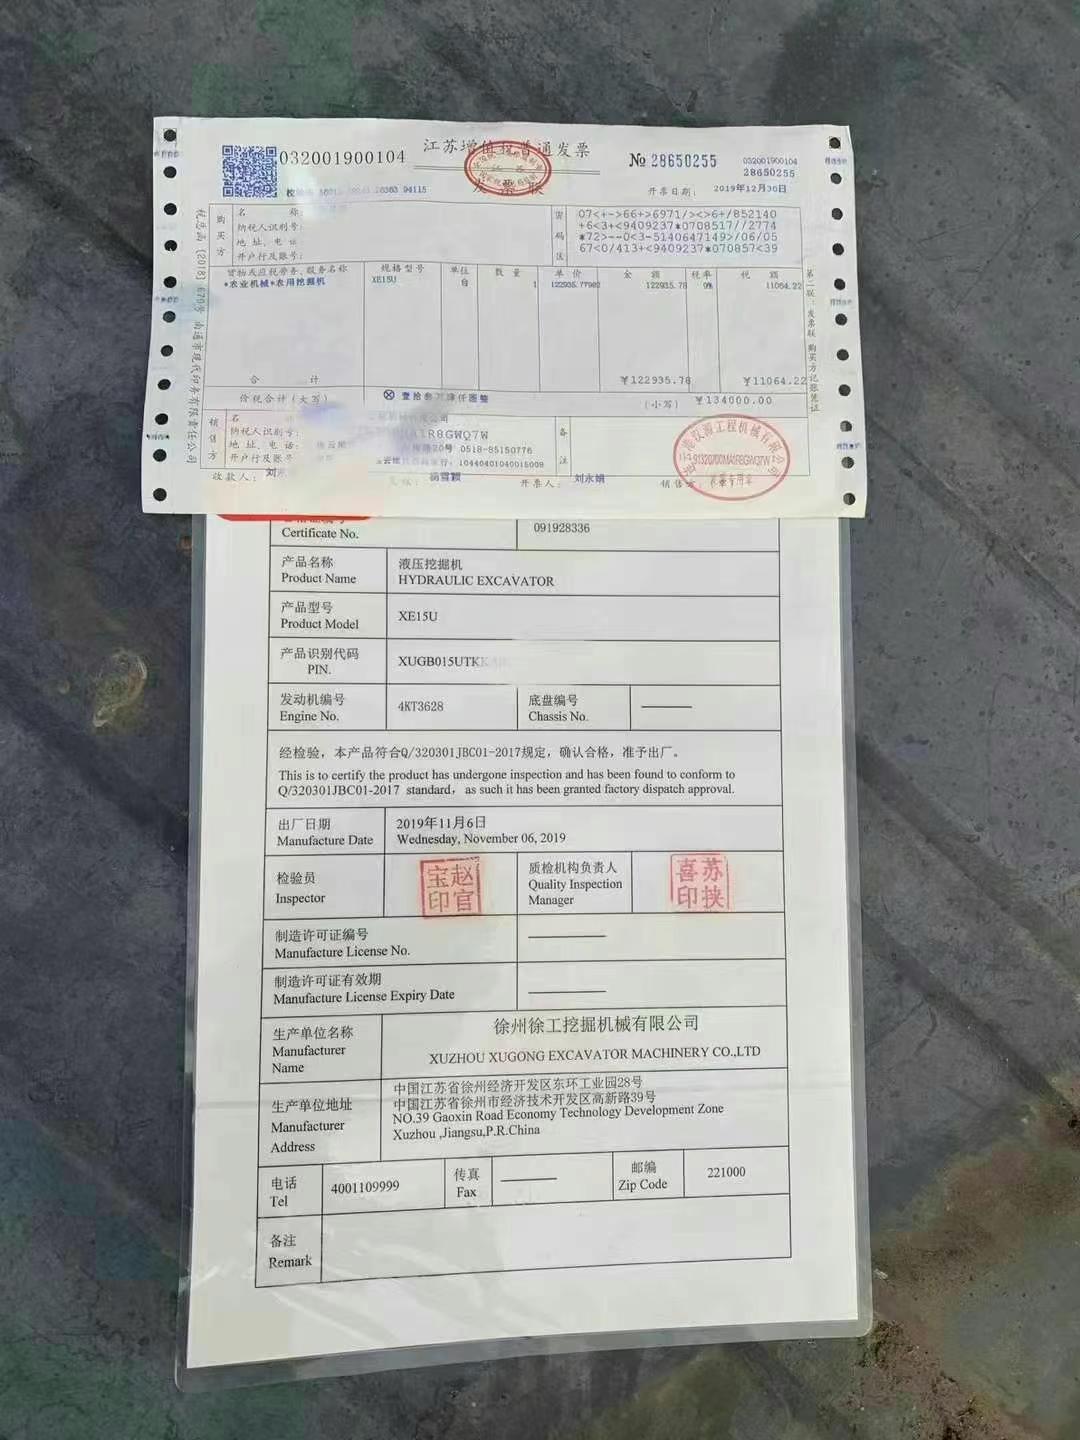 032001900104
江苏增值税普通发票
发票联
№ 28650255
032001900104
28650255
开票日期： 2019年12月30日
税总函〔2018〕670号 南通市现代印务有限责任公司
购买方
名 称：
纳税人识别号：
地 址、电 话：
开户行及账号：
密码区
07<+->66+>6971/><>6+/852140
+6<3+<9409237*0708517//2774
*72>--0<3-5140647149>/06/05
67<0/413+<9409237*070857<39
货物或应税劳务、服务名称 规格型号 单位 数 量 单 价 金 额 税率 税 额
*农业机械*农用挖掘机 XE15U 台 1 122935.77982 122935.78 9% 11064.22
合 计 ¥122935.78 ¥11064.22
价税合计（大写） 壹拾叁万肆仟圆整 （小写） ¥134000.00
第二联：发票联 购买方记账凭证
销售方
名
纳税人识别号：
地 址、电 话： 20号 0518-85150776
开户行及账号 10440401040015008
备注
收款人：
杨雪颖
开票人： 刘永娟
销售方
Certificate No. 091928336
产品名称
Product Name
液压挖掘机
HYDRAULIC EXCAVATOR
产品型号
Product Model
XE15U
产品识别代码
PIN.
XUGB015UTKK
发动机编号
Engine No.
4KT3628
底盘编号
Chassis No.
经检验，本产品符合Q/320301JBC01-2017规定，确认合格，准予出厂。
This is to certify the product has undergone inspection and has been found to conform to
Q/320301JBC01-2017 standard, as such it has been granted factory dispatch approval.
出厂日期
Manufacture Date
2019年11月6日
Wednesday, November 06, 2019
检验员
Inspector
赵官宝印
质检机构负责人
Quality Inspection
Manager
苏挟喜印
制造许可证编号
Manufacture License No.
制造许可证有效期
Manufacture License Expiry Date
生产单位名称
Manufacturer
Name
徐州徐工挖掘机械有限公司
XUZHOU XUGONG EXCAVATOR MACHINERY CO.,LTD
生产单位地址
Manufacturer
Address
中国江苏省徐州经济开发区东环工业园28号
中国江苏省徐州市经济技术开发区高新路39号
NO.39 Gaoxin Road Economy Technology Development Zone
Xuzhou ,Jiangsu,P.R.China
电话
Tel
4001109999
传真
Fax
邮编
Zip Code
221000
备注
Remark